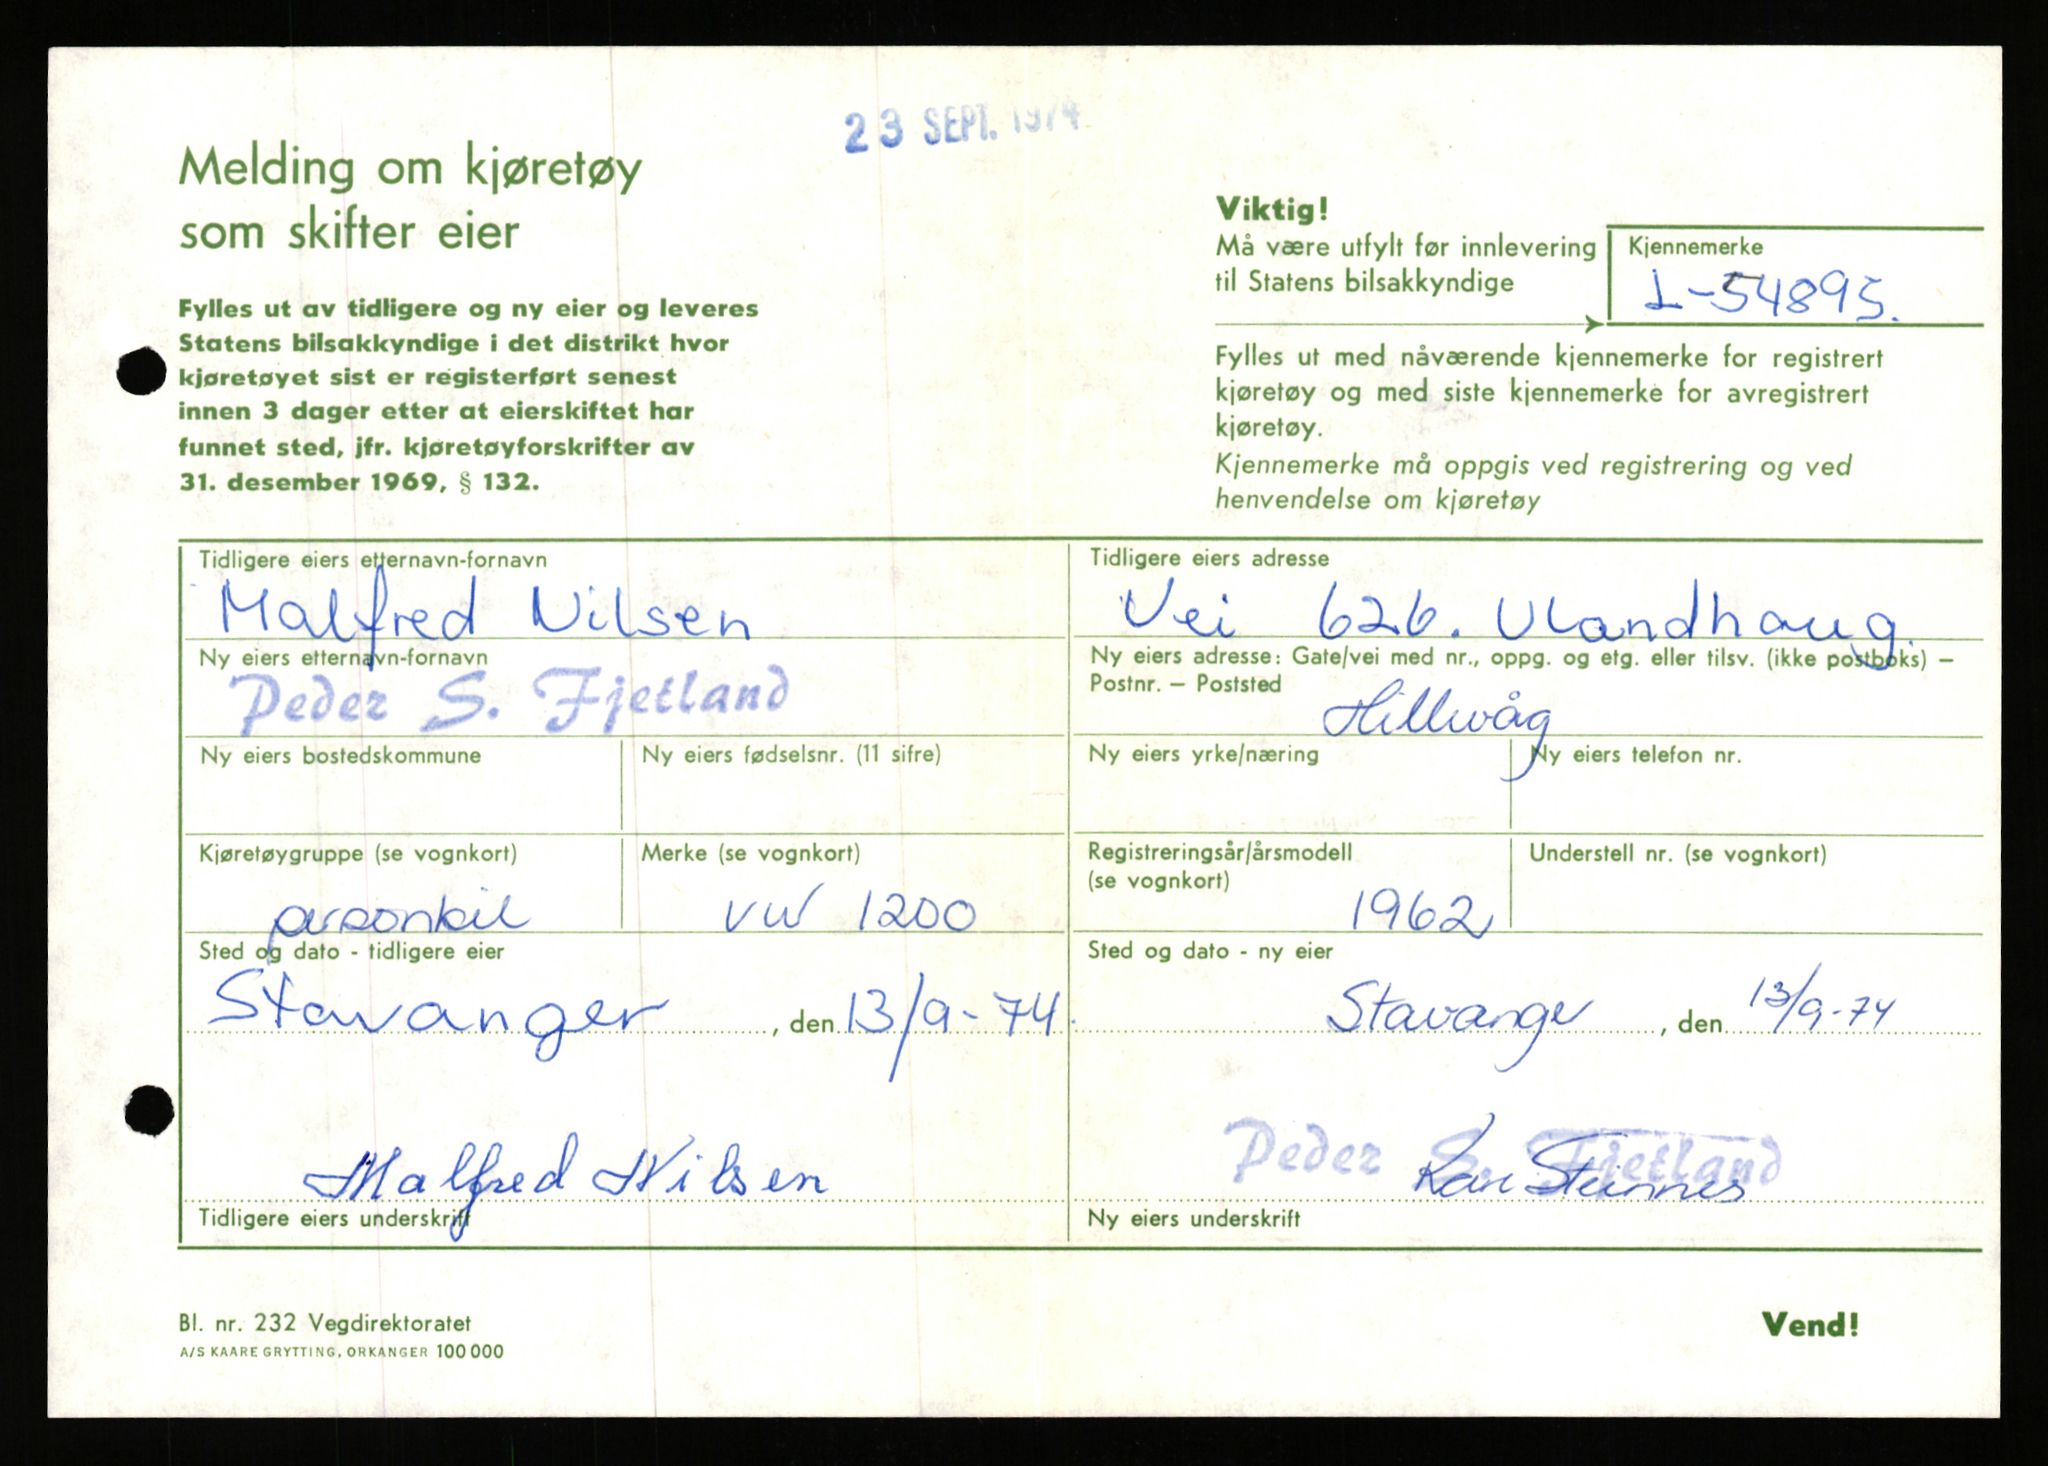 23 SEPT. 1974
Melding om kjøretøy
som skifter eier
Fylles ut av tidligere og ny eier og leveres
Statens bilsakkyndige i det distrikt hvor
kjøretøyet sist er registerført senest
innen 3 dager etter at eierskiftet har
funnet sted, jfr. kjøretøyforskrifter av
31. desember 1969, § 132.
Viktig!
Må være utfylt før innlevering
til Statens bilsakkyndige
Kjennemerke
L-54895.
Fylles ut med nåværende kjennemerke for registrert
kjøretøy og med siste kjennemerke for avregistrert
kjøretøy.
Kjennemerke må oppgis ved registrering og ved
henvendelse om kjøretøy
Tidligere eiers etternavn-fornavn
Malfred Nilsen
Tidligere eiers adresse
Vei 626. Ulandhaug.
Ny eiers etternavn-fornavn
Peder S. Fjetland
Ny eiers adresse: Gate/vei med nr., oppg. og etg. eller tilsv. (ikke postboks) –
Postnr. – Poststed
Hillevåg
Ny eiers bostedskommune
Ny eiers fødselsnr. (11 sifre)
Ny eiers yrke/næring
Ny eiers telefon nr.
Kjøretøygruppe (se vognkort)
personbil
Merke (se vognkort)
VW 1200
Registreringsår/årsmodell
(se vognkort)
1962
Understell nr. (se vognkort)
Sted og dato - tidligere eier
Stavanger, den 13/9-74.
Sted og dato - ny eier
Stavanger, den 13/9-74
Malfred Nilsen
Tidligere eiers underskrift
Peder S. Fjetland
Kåre Steinnes
Ny eiers underskrift
Bl. nr. 232 Vegdirektoratet
A/S KAARE GRYTTING, ORKANGER 100 000
Vend!